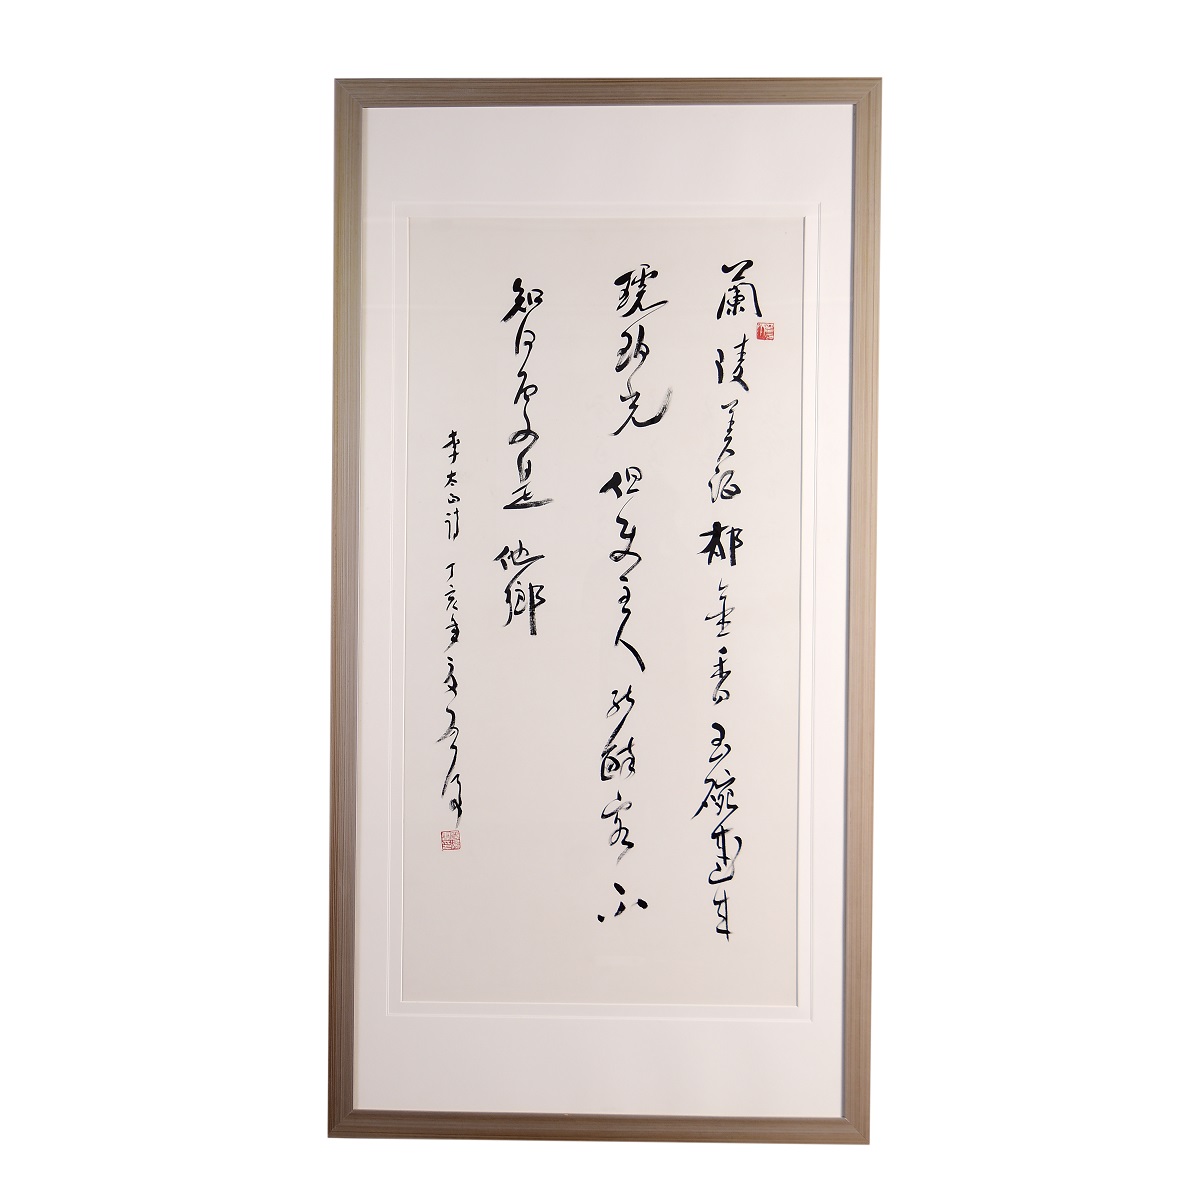 蘭陵美酒郁金香玉碗盛来
琥珀光但使主人能醉客不
知何處是他鄉
李太白詩 丁亥年夏